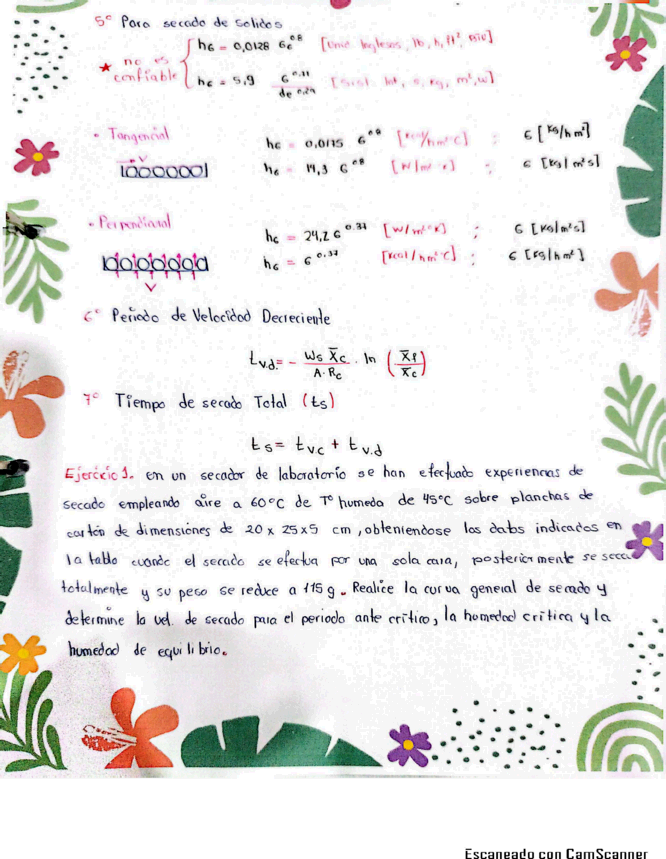 5° Para secado de solidos
hG = 0,0128 G^0.8
★ no es confiable
hc = 5,9 G^0.71 / de^0.29
• Tangencial
hG = 0,0175 G^0.8 [kcal/hm²°C] ; G [kg/hm²]
V
hG = 14,3 G^0.8 [W/m²·K] ; G [kg/m²s]
• Perpendicular
hG = 24,2 G^0.37 [W/m²°K] ; G [kg/m²s]
hG = G^0.37 [kcal/hm²°C] ; G [kg/hm²]
V
6° Periodo de Velocidad Decreciente
tv.d. = - Ws X̄c / A·Rc · ln (X̄f / X̄c)
7° Tiempo de secado Total (ts)
ts = tvc + tv.d
Ejercicio 1. en un secador de laboratorio se han efectuado experiencias de
secado empleando aire a 60°C de T° humeda de 45°C sobre planchas de
cartón de dimensiones de 20 x 25x5 cm, obteniendose los datos indicados en
la tabla cuando el secado se efectua por una sola cara, posteriormente se seca
totalmente y su peso se reduce a 115 g. Realice la curva general de secado y
determine la vel. de secado para el periodo ante critico, la humedad critica y la
humedad de equilibrio.
Escaneado con CamScanner